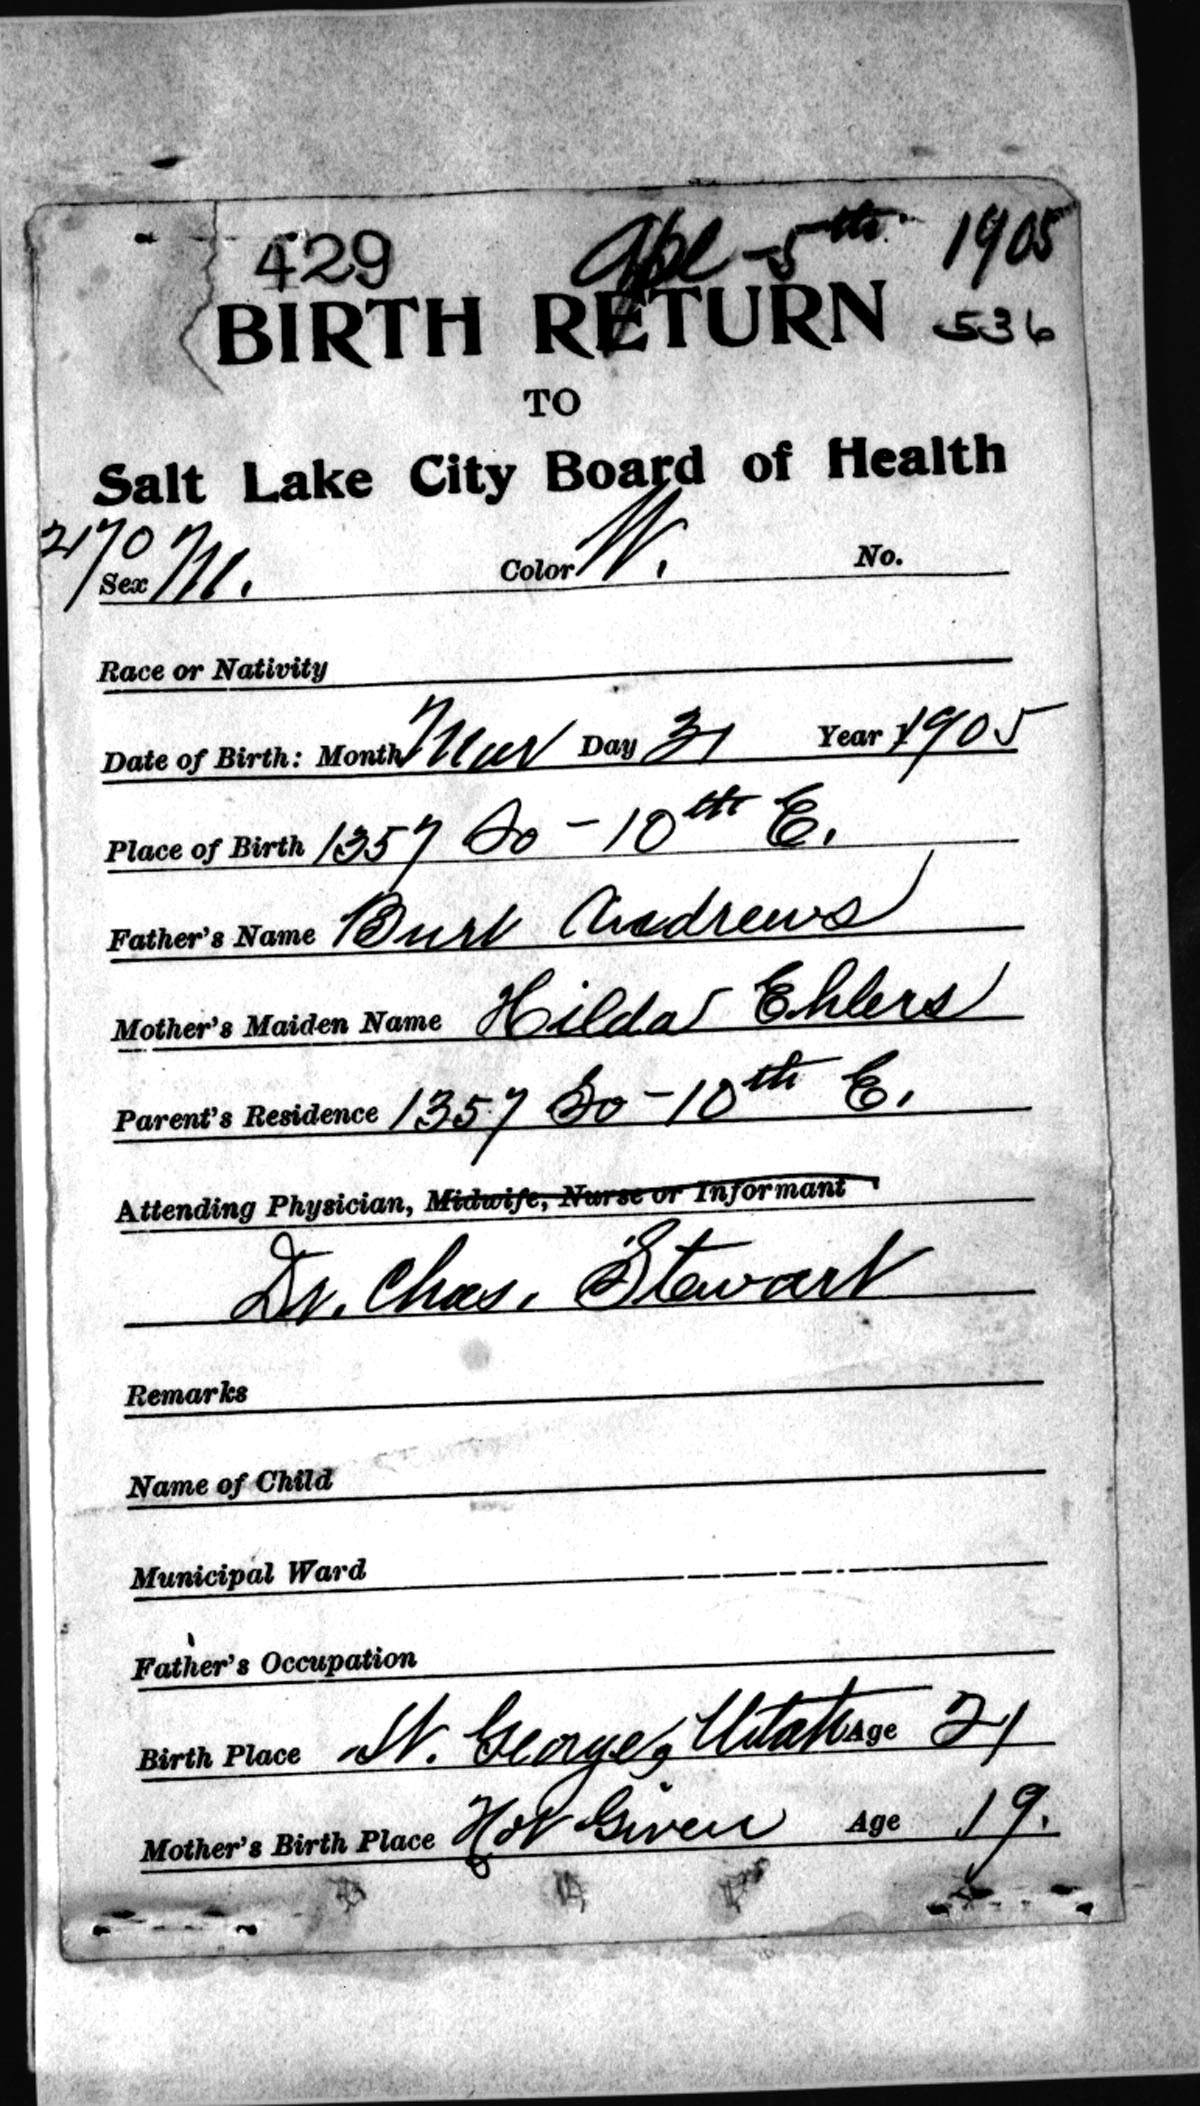 429 Apl - 5th 1905
BIRTH RETURN 536
TO
Salt Lake City Board of Health
2170
Sex M. Color W. No.
Race or Nativity
Date of Birth: Month Mar Day 31 Year 1905
Place of Birth 1357 So - 10th E.
Father's Name Burt Andrews
Mother's Maiden Name Hilda Ehlers
Parent's Residence 1357 So - 10th E.
Attending Physician, Midwife, Nurse or Informant
Dr. Chas. Stewart
Remarks
Name of Child
Municipal Ward
Father's Occupation
Birth Place St. George, Utah Age 21
Mother's Birth Place Not Given Age 19.